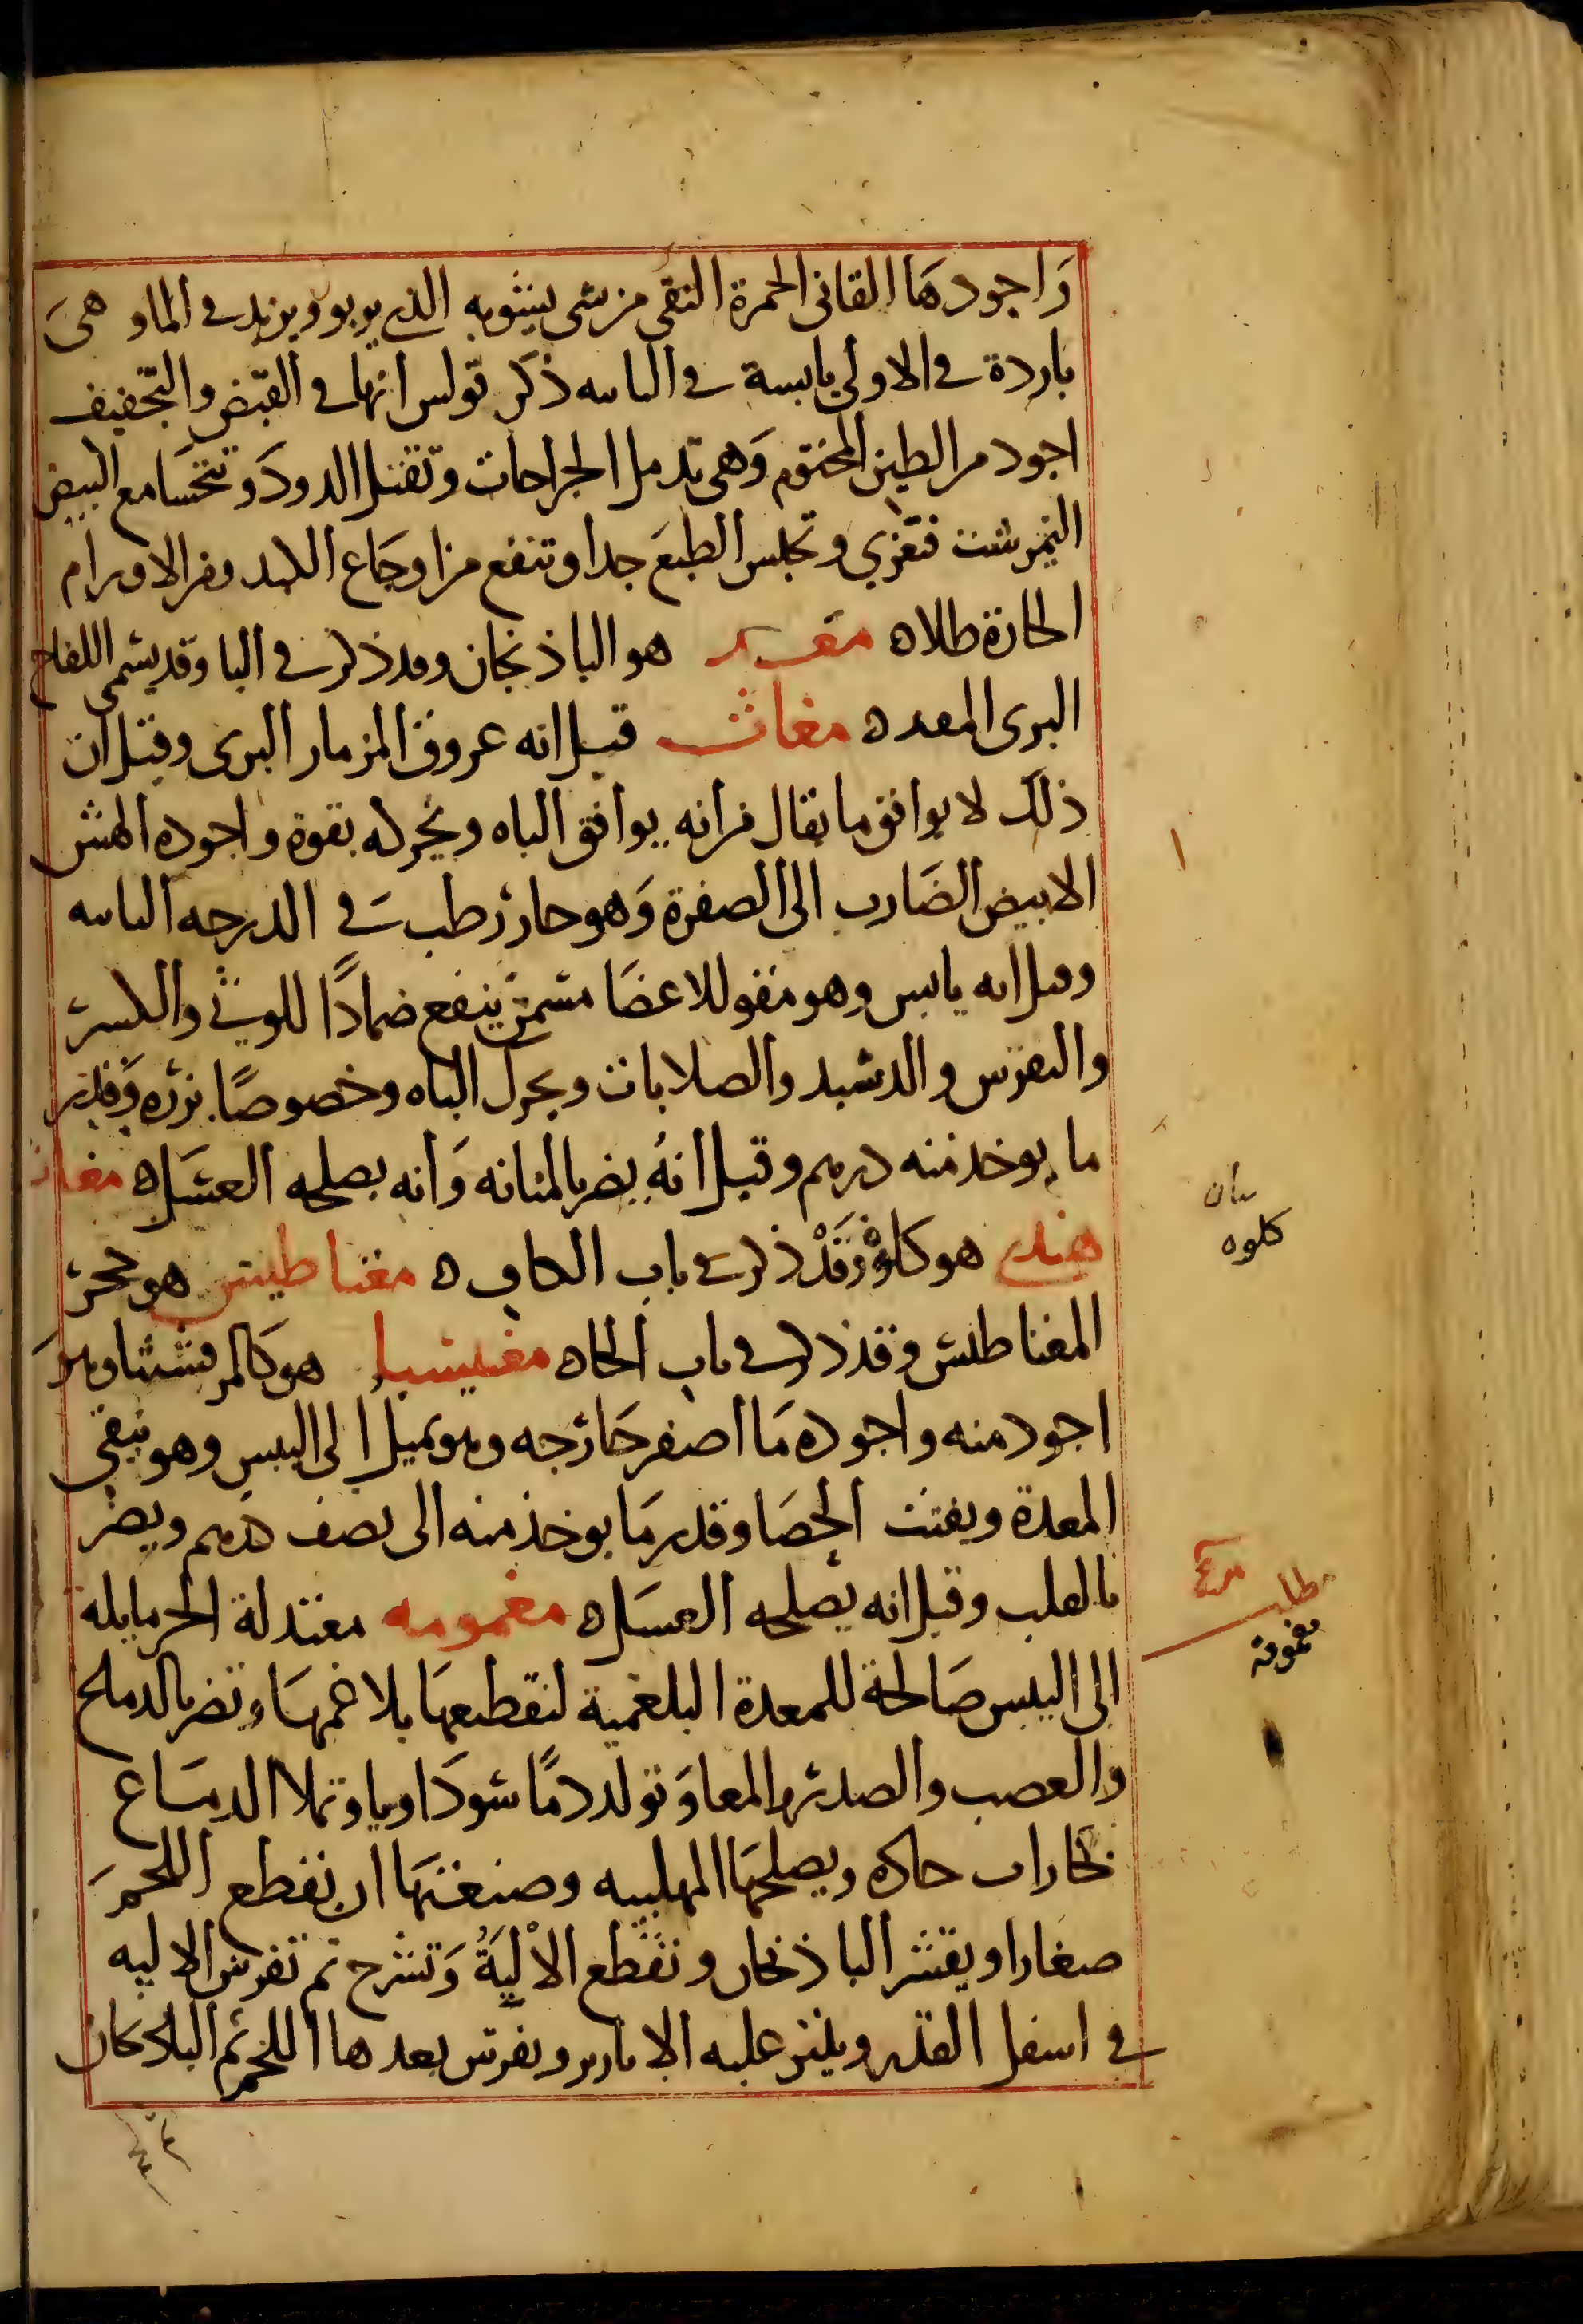 واجودها القانى الحمرة النقى من شى يشوبه الذى يربو ويزيد فى الما وهى
باردة فى الاولى يابسة فى الثانيه ذكر بولس انها فى القبض والتجفيف
اجود من الطين المختوم وهى تدمل الجراحات وتقتل الدود وتتحسا مع البيض
النيمرشت فتغزي وتحبس الطبع جدا وتنفع من اوجاع الكبد ومن الاورام
الحارة طلاه مغد هو الباذنجان وقد ذكر فى البا وقد يسمى اللفاح
البرى المغد ه مغاث قيل انه عروق المزمار البرى وقيل ان
ذلك لا يوافق ما يقال من انه يوافق الباه ويحركه بقوة واجوده الهش
الابيض الضارب الى الصفرة وهو حار رطب فى الدرجه الثانيه
وقيل انه يابس وهو مقو للاعضا مسمن ينفع ضمادًا للوثى والكسر
والنقرس والدشبد والصلابات ويحرك الباه وخصوصًا بزره وقدر
ما يوخذ منه درهم وقيل انه يضر بالمثانه وانه يصلحه العسل ه مغاث
هندى هو كلوه وقد ذكر فى باب الكاف ه مغناطيس هو حجر
المغناطيس وقد ذكر فى باب الحاه مغنيسيا هو كالمرقشيثا وهو
اجود منه واجوده ما اصفر خارجه وهو يميل الى اليبس وهو ينقى
المعدة ويفتت الحصا وقدر ما يوخذ منه الى نصف درهم ويضر
بالقلب وقيل انه يصلحه العسل ه مغمومه معتدلة الحر مايلة
الى اليبس صالحة للمعدة البلغمية لتقطيعها بلاغمها وتضر بالدماغ
والعصب والصدر والمعا وتولد دمًا سوداويا وتملا الدماغ
بخارات حاده ويصلحها المهلبيه وصنعتها ان يقطع اللحم
صغارا ويقشر الباذنجان وتقطع الالية وتشرح ثم تفرش الاليه
فى اسفل القدر ويلقى عليه الابازير ويفرش بعدها اللحم ثم الباذنجان
كلوه
مطلب
مغمومة